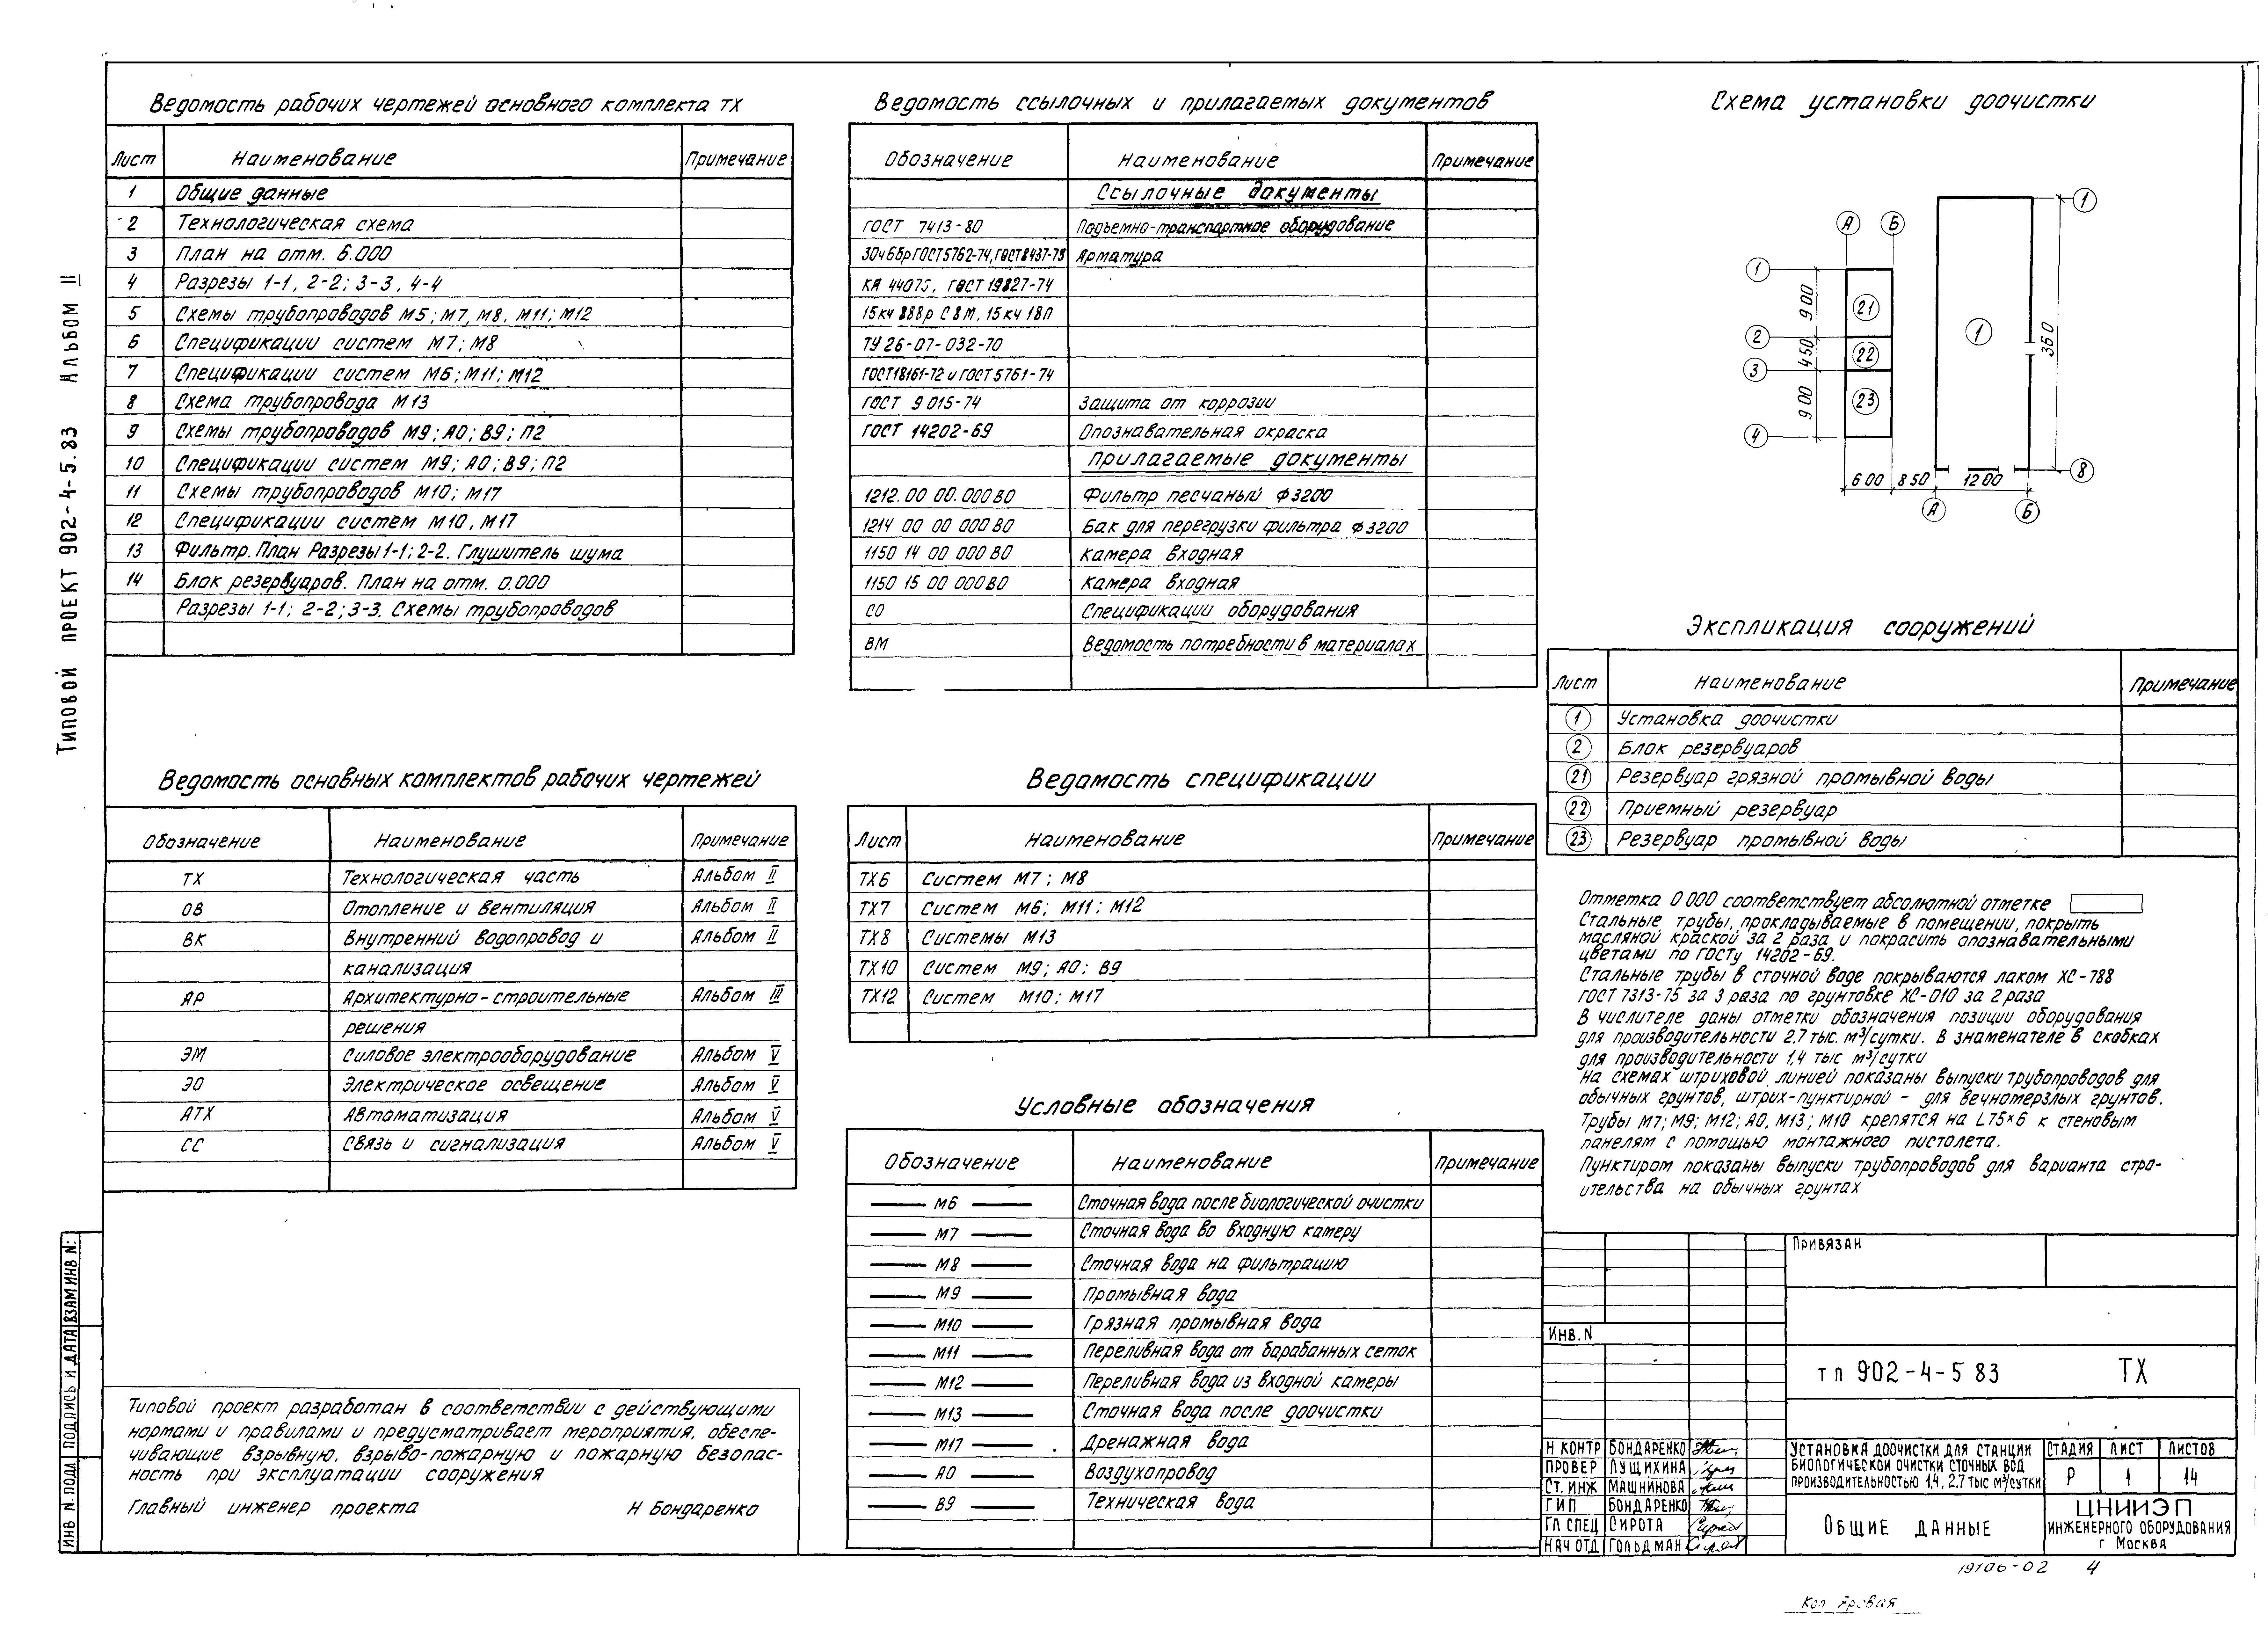 Типовой проект 902-4-5.83 Альбом II
Ведомость рабочих чертежей основного комплекта ТХ
Лист Наименование Примечание
1 Общие данные
2 Технологическая схема
3 План на отм. 6.000
4 Разрезы 1-1, 2-2; 3-3, 4-4
5 Схемы трубопроводов М5; М7, М8, М11; М12
6 Спецификации систем М7; М8
7 Спецификации систем М6; М11; М12
8 Схема трубопровода М13
9 Схемы трубопроводов М9; А0; В9; П2
10 Спецификации систем М9; А0; В9; П2
11 Схемы трубопроводов М10; М17
12 Спецификации систем М10, М17
13 Фильтр. План Разрезы 1-1; 2-2. Глушитель шума
14 Блок резервуаров. План на отм. 0.000
Разрезы 1-1; 2-2; 3-3. Схемы трубопроводов
Ведомость основных комплектов рабочих чертежей
Обозначение Наименование Примечание
ТХ Технологическая часть Альбом II
ОВ Отопление и вентиляция Альбом II
ВК Внутренний водопровод и Альбом II
канализация
АР Архитектурно-строительные Альбом III
решения
ЭМ Силовое электрооборудование Альбом V
ЭО Электрическое освещение Альбом V
АТХ Автоматизация Альбом V
СС Связь и сигнализация Альбом V
Типовой проект разработан в соответствии с действующими
нормами и правилами и предусматривает мероприятия, обеспе-
чивающие взрывную, взрыво-пожарную и пожарную безопас-
ность при эксплуатации сооружения
Главный инженер проекта Н Бондаренко
Инв N. подл Подпись и дата Взам инв N:
Ведомость ссылочных и прилагаемых документов
Обозначение Наименование Примечание
Ссылочные документы
ГОСТ 7413-80 Подъемно-транспортное оборудование
30ч6бр ГОСТ5762-74, ГОСТ8437-75 Арматура
КА 44075, ГОСТ 19827-74
15кч 888р СВМ, 15кч 18п
ТУ 26-07-032-70
ГОСТ18161-72 и ГОСТ5761-74
ГОСТ 9015-74 Защита от коррозии
ГОСТ 14202-69 Опознавательная окраска
Прилагаемые документы
1212.00 00.000 ВО Фильтр песчаный ф3200
1214 00 00 000 ВО Бак для перегрузки фильтра ф3200
1150 14 00 000 ВО Камера входная
1150 15 00 000 ВО Камера входная
СО Спецификации оборудования
ВМ Ведомость потребности в материалах
Ведомость спецификации
Лист Наименование Примечание
ТХ6 Систем М7; М8
ТХ7 Систем М6; М11; М12
ТХ8 Системы М13
ТХ10 Систем М9; А0; В9
ТХ12 Систем М10; М17
Условные обозначения
Обозначение Наименование Примечание
М6 Сточная вода после биологической очистки
М7 Сточная вода во входную камеру
М8 Сточная вода на фильтрацию
М9 Промывная вода
М10 Грязная промывная вода
М11 Переливная вода от барабанных сеток
М12 Переливная вода из входной камеры
М13 Сточная вода после доочистки
М17 Дренажная вода
А0 Воздухопровод
В9 Техническая вода
Схема установки доочистки
А Б 1
1 900 21
2 450 22 1 360
3
900 23
4
600 850 1200 8
А Б
Экспликация сооружений
Лист Наименование Примечание
1 Установка доочистки
2 Блок резервуаров
21 Резервуар грязной промывной воды
22 Приемный резервуар
23 Резервуар промывной воды
Отметка 0 000 соответствует абсолютной отметке
Стальные трубы, прокладываемые в помещении, покрыть
масляной краской за 2 раза и покрасить опознавательными
цветами по ГОСТу 14202-69.
Стальные трубы в сточной воде покрываются лаком ХС-788
ГОСТ 7313-75 за 3 раза по грунтовке ХС-010 за 2 раза
В числителе даны отметки обозначения позиции оборудования
для производительности 2,7 тыс. м³/сутки. В знаменателе в скобках
для производительности 1,4 тыс м³/сутки
На схемах штриховой линией показаны выпуски трубопроводов для
обычных грунтов, штрих-пунктирной - для вечномерзлых грунтов.
Трубы М7; М9; М12; А0, М13; М10 крепятся на L75×6 к стеновым
панелям с помощью монтажного пистолета.
Пунктиром показаны выпуски трубопроводов для варианта стро-
ительства на обычных грунтах
Привязан
Инв. N
тп 902-4-5 83 ТХ
Н контр Бондаренко
Провер Лущихина
Ст. инж Машнинова
ГИП Бондаренко
Гл спец Сирота
Нач отд Гольдман
Установка доочистки для станции
биологической очистки сточных вод
производительностью 1,4, 2,7 тыс м³/сутки
Стадия Лист Листов
Р 1 14
Общие данные
ЦНИИЭП
инженерного оборудования
г Москва
19106-02 4